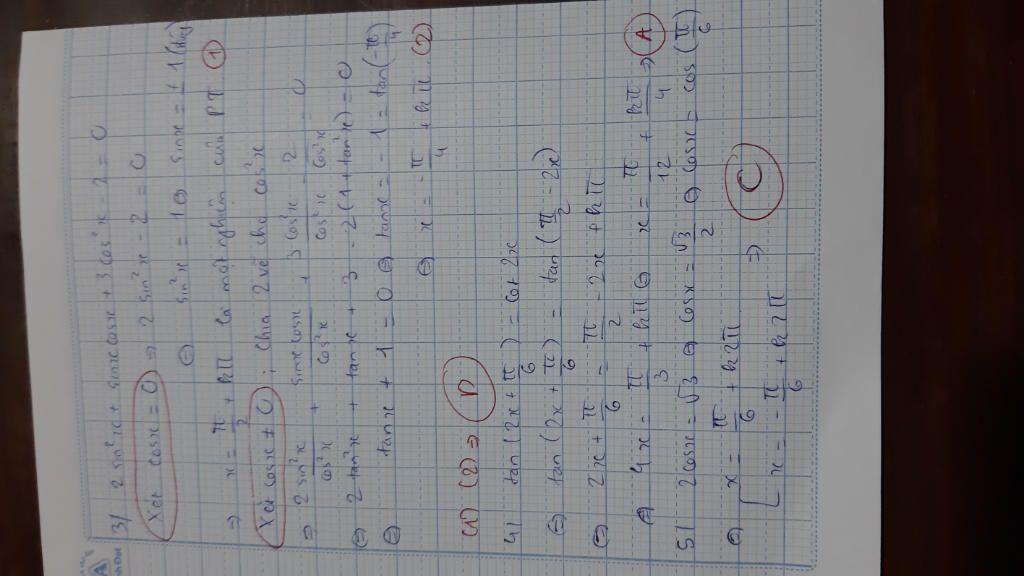 3/ 2 sin²x + sinxcosx + 3cos²x - 2 = 0
Xét cosx = 0 ⇒ 2 sin²x - 2 = 0
⇔ sin²x = 1 ⇔ sinx = ±1
⇒ x = π/2 + kπ là một nghiệm của PT (1)
Xét cosx ≠ 0 ; Chia 2 vế cho cos²x
⇒ 2 sin²x/cos²x + sinxcosx/cos²x + 3cos²x/cos²x - 2/cos²x = 0
⇔ 2tan²x + tanx + 3 - 2(1 + tan²x) = 0
⇔ tanx + 1 = 0 ⇔ tanx = -1 = tan(-π/4)
⇔ x = -π/4 + kπ (2)
(1) (2) ⇒ D
4/ tan(2x + π/6) = cot 2x
⇔ tan(2x + π/6) = tan(π/2 - 2x)
⇔ 2x + π/6 = π/2 - 2x + kπ
⇔ 4x = π/3 + kπ ⇔ x = π/12 + kπ/4 ⇒ A
5/ 2cosx = √3 ⇔ cosx = √3/2 ⇔ cosx = cos(π/6)
⇔ [ x = π/6 + k2π
x = -π/6 + k2π ⇒ C